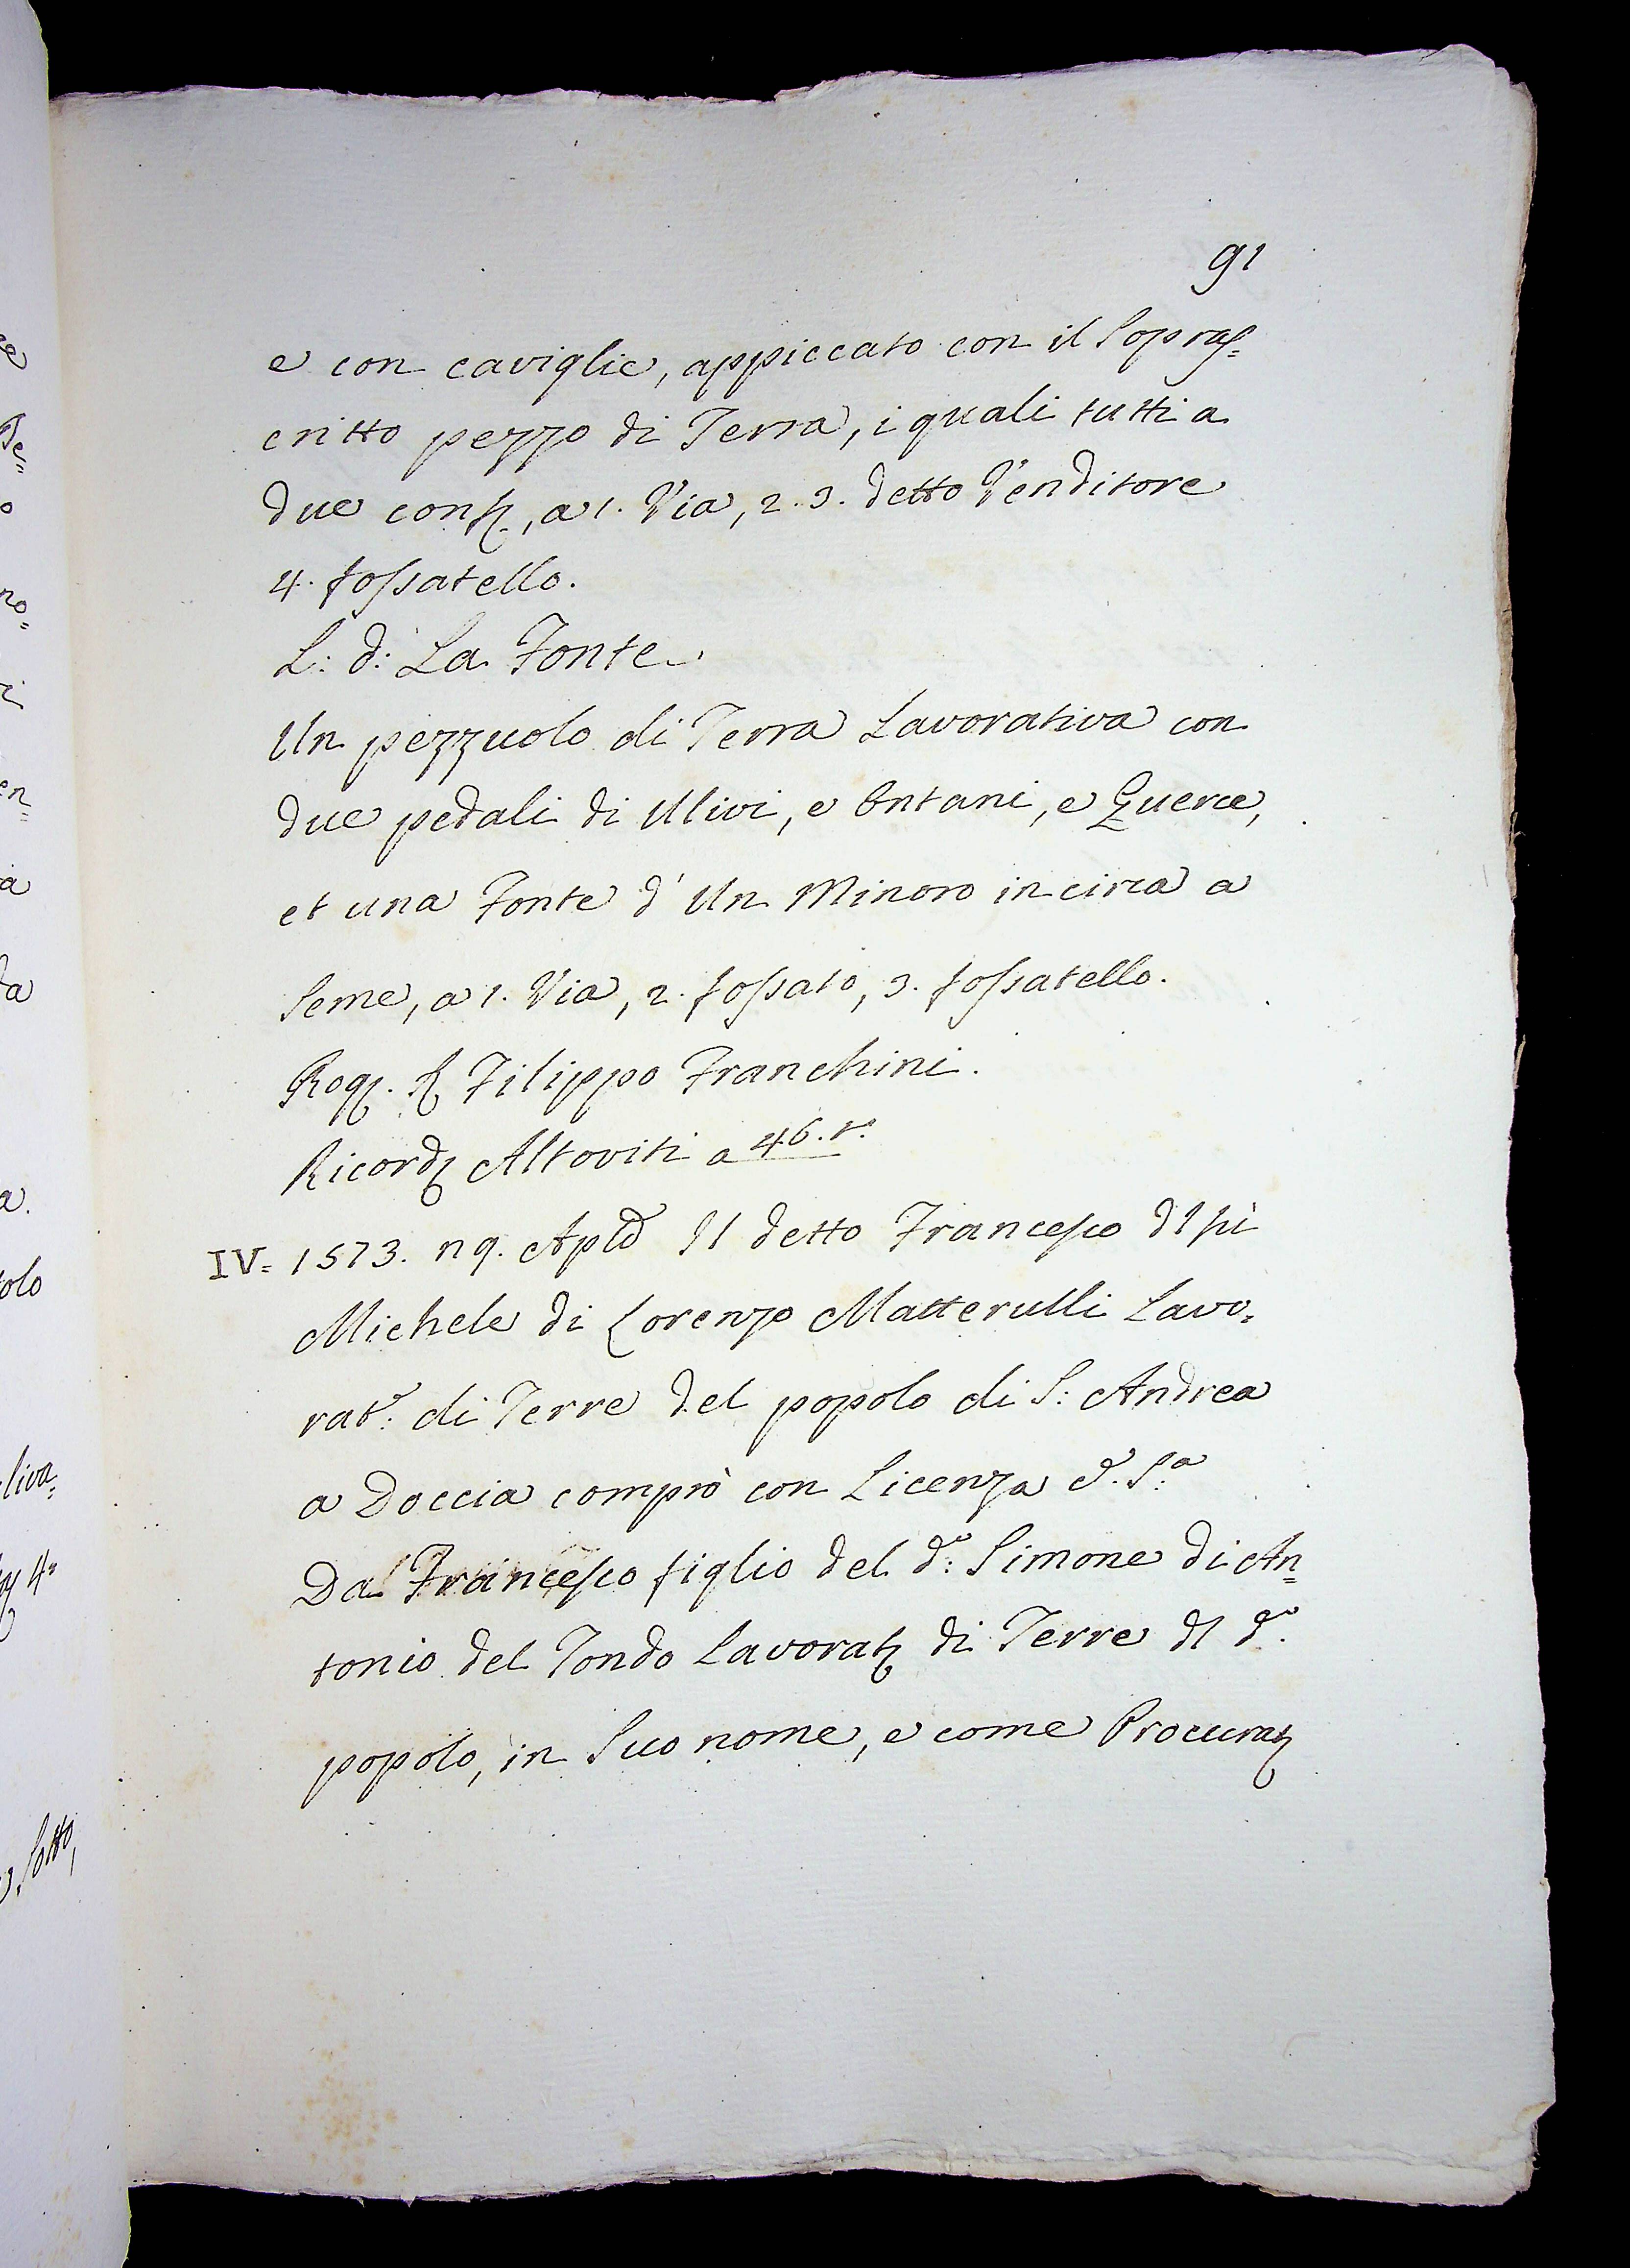 91
e con caviglie, appiccato con il Sopras=
critto pezzo di Terra, i quali tutti a
due conf., a 1. Via, 2. 3. detto Venditore
4. fossatello.
L: d: La Fonte
Un pezzuolo di Terra Lavorativa con
due pedali di Ulivi, e Ontani, e Querce,
et una Fonte d' Un Minoro in circa a
Seme, a 1. Via, 2. fossato, 3. fossatello.
Rog. Filippo Franchini.
Ricord Altoviti a 46. t.
IV= 1573. Il detto Francesco
Michele di Lorenzo Matterulli Lavo=
rat.e: di Terre del popolo di S: Andrea
a Doccia comprò con Licenza d. S:a
Da Francesco figlio del d.o: Simone di An=
tonio del Tondo Lavorat di Terre dl d.o
popolo, in Suo nome, e come Procurat